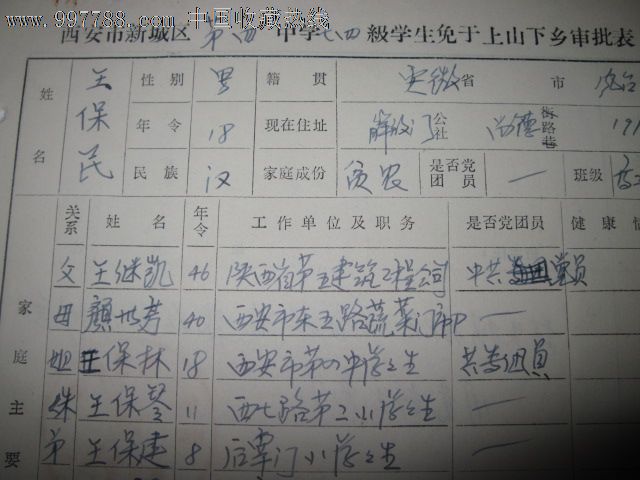 www.997788.com 中国收藏热线
西安市新城区 第四 中学七四 級学生免于上山下乡审批表
姓名 王保民 性别 男 籍贯 安徽 省 市
年令 18 现在住址 解放门 公社 尚德 街路巷 191
民族 汉 家庭成份 贫农 是否党团员 — 班级 高二
关系 姓名 年令 工作单位及职务 是否党团员 健康
家庭主要
父 王继凯 46 陕西省第五建筑工程公司 中共党员
母 颜世芳 40 西安市东五路蔬菜门市部 —
姐 王保林 18 西安市第四中学学生 共青团员
妹 王保琴 11 西七路第二小学学生 —
弟 王保建 8 后宰门小学学生 —